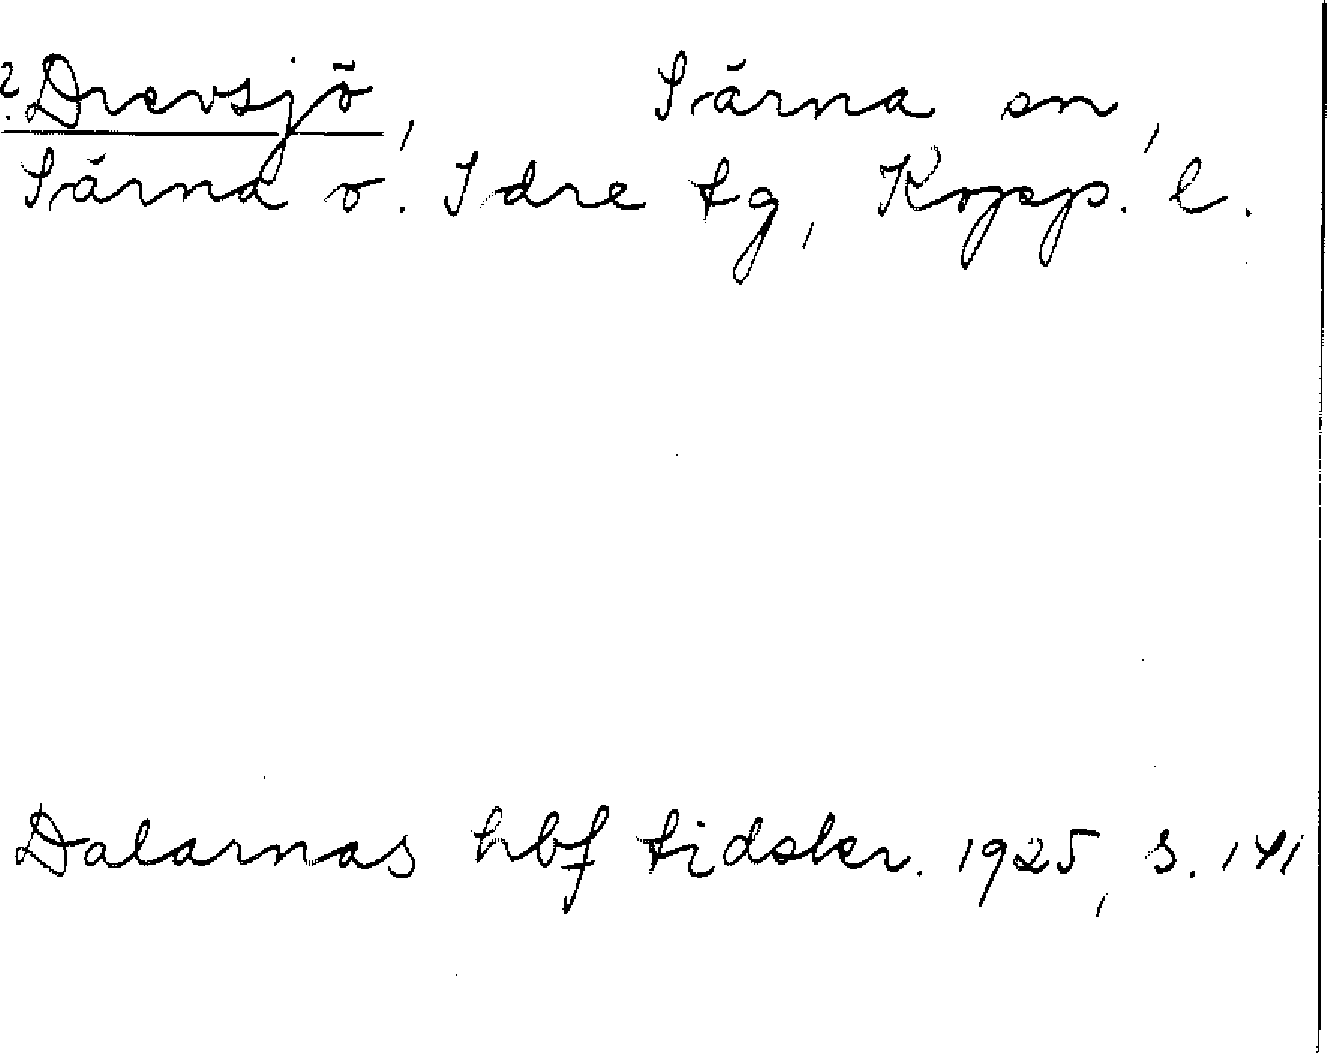 ? Drevsjö, Särna sn,
Särna o. Idre tg, Kopp. l.
Dalarnas hbf tidskr. 1925, s. 141